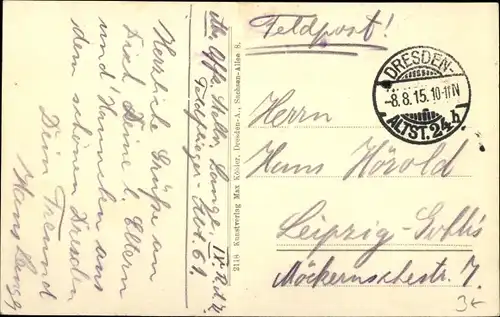 Feldpost!
DRESDEN-
-8.8.15.10-11N
ALTST.24h
Herrn
Hans Hörold
Leipzig-Gohlis
Möckernschestr. 7.
3x
2118 Kunstverlag Max Köhler, Dresden-A., Sachsen-Allee 8.
Lange
Feldflieger-Abt. 61.
Herzliche Grüße an
Dich, Deine l. Eltern
und Hannchen aus
dem schönen Dresden
Dein Freund
Hans Lange